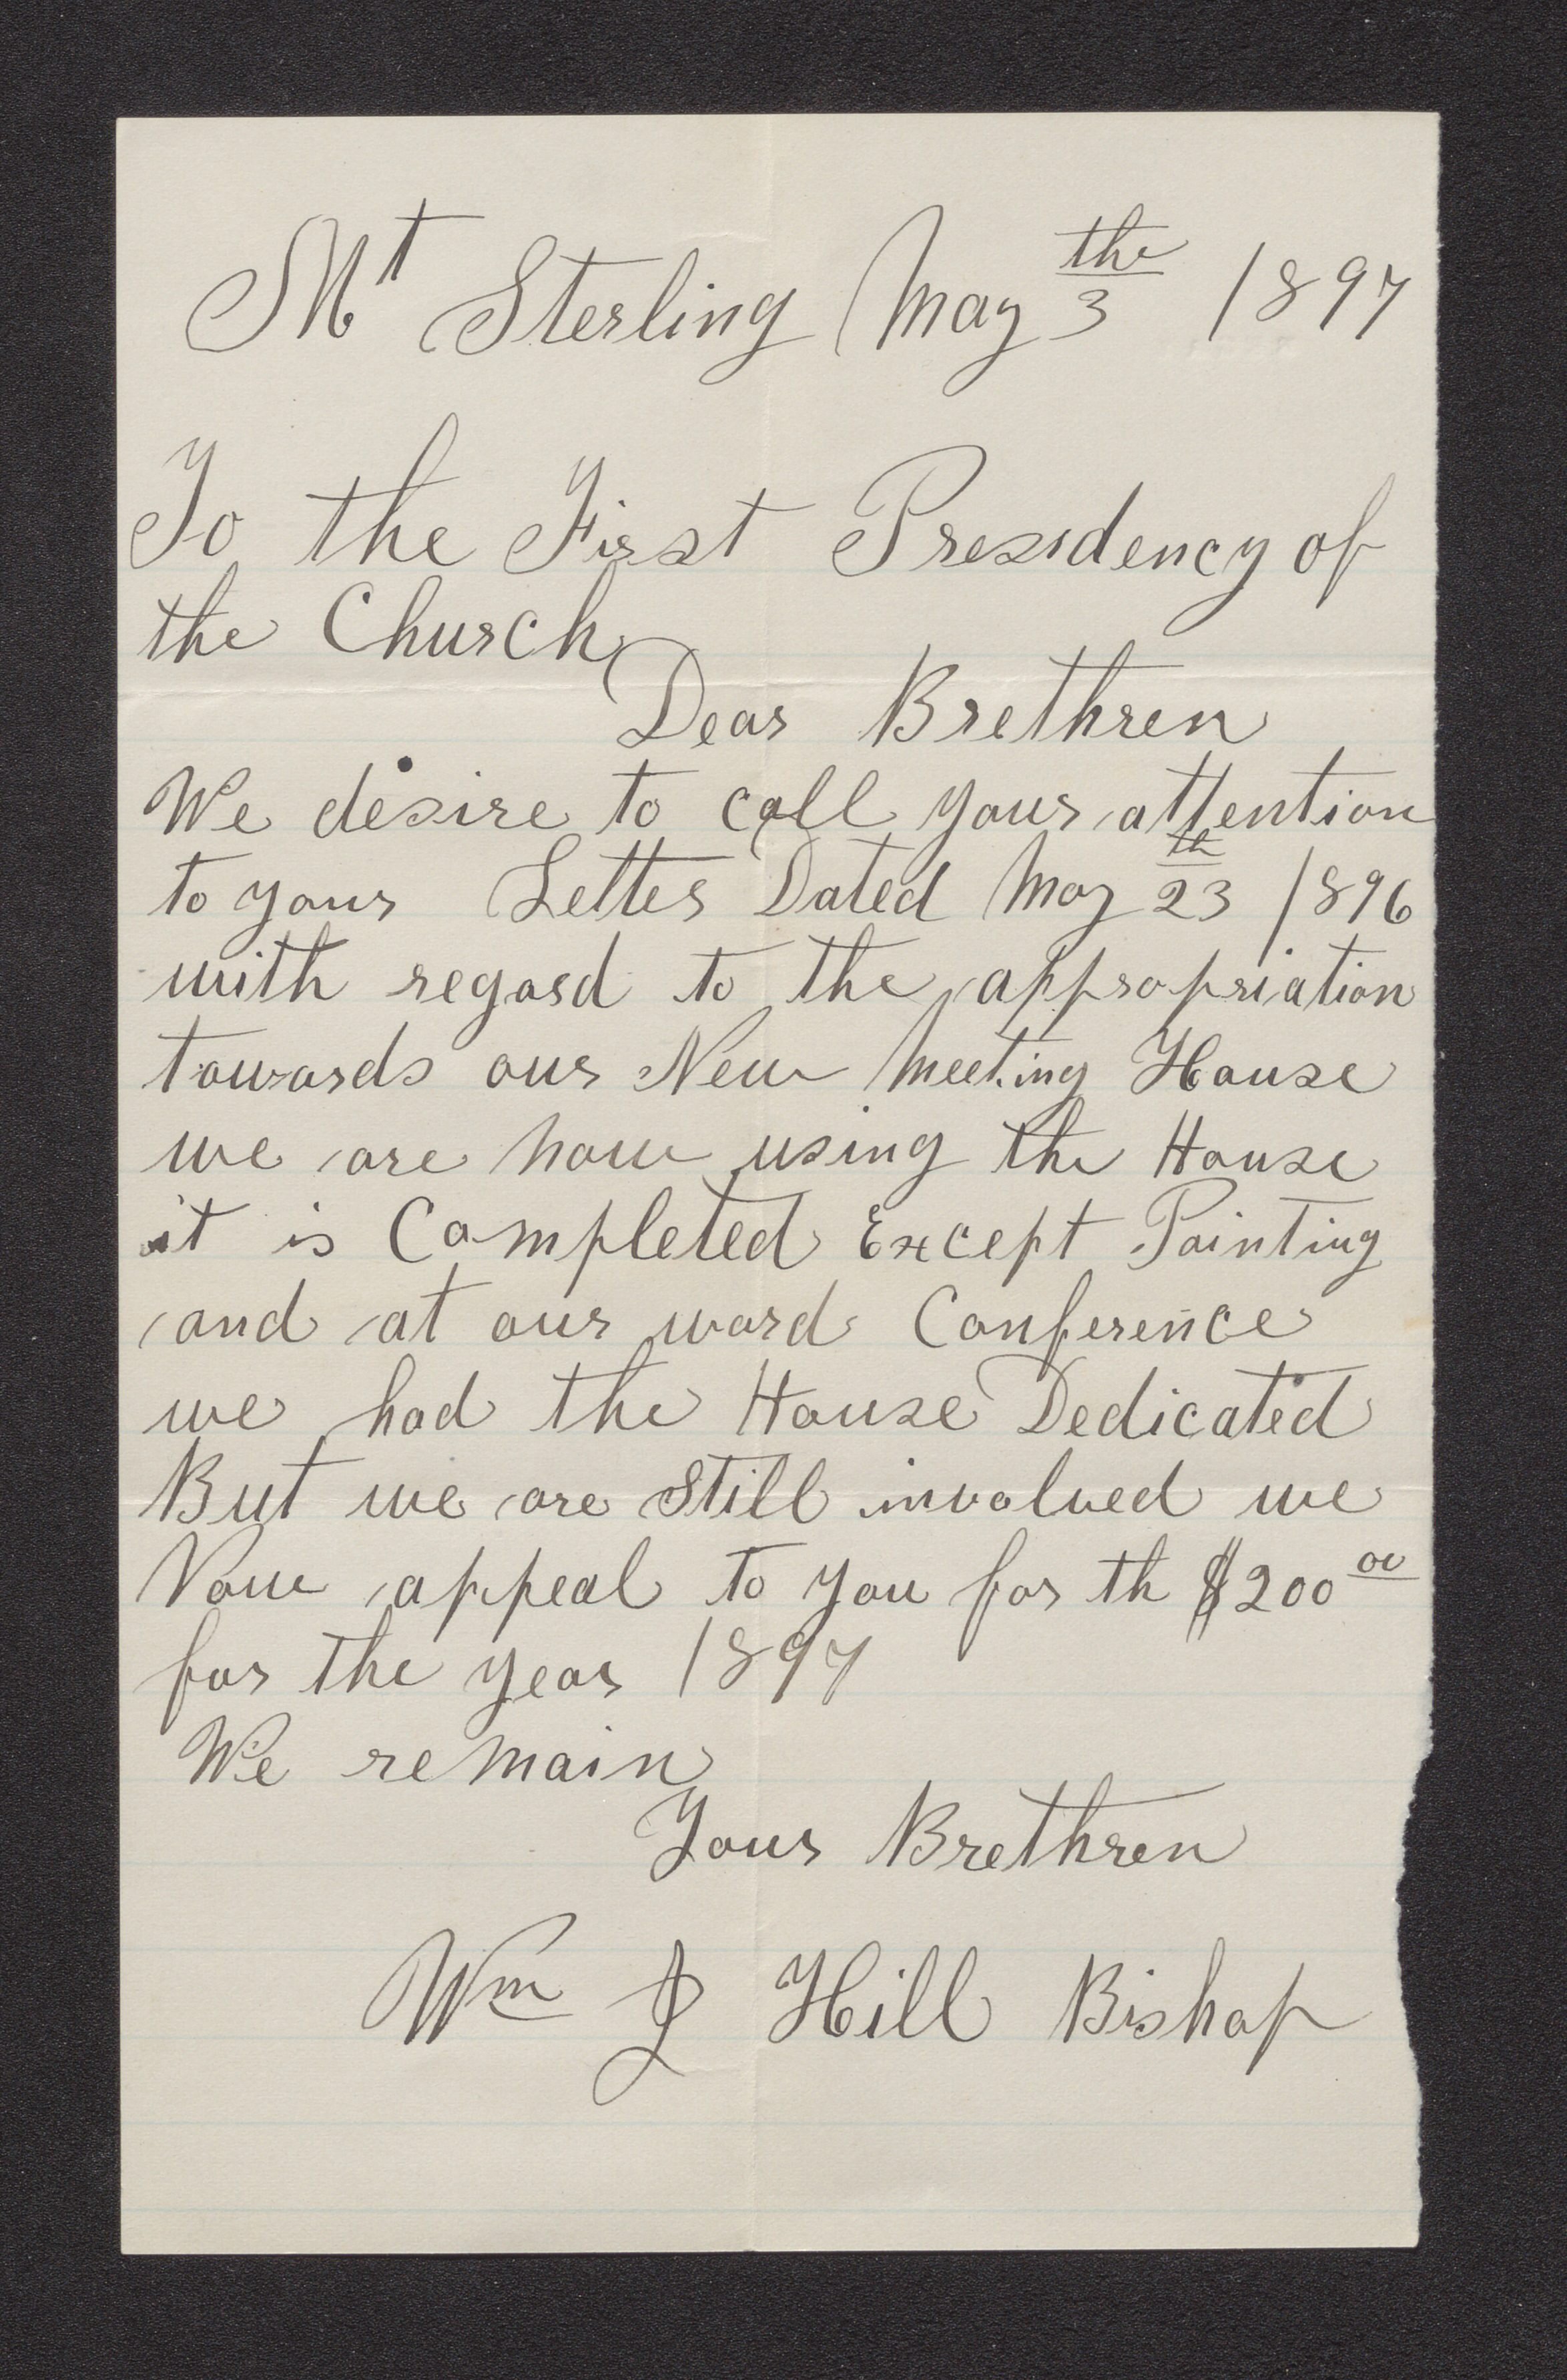 Mt Sterling May 3the 1897
To the First Presidency of
the Church
Dear Brethren
We desire to call your attention
to your Letter Dated May 23th 1896
with regard to the appropriation
towards our New Meeting House
we are now using the House
it is Completed Except Painting
and at our ward Conference
we had the House Dedicated
But we are still involved we
Now appeal to you for th $200 00
for the year 1897
We remain
Your Brethren
Wm J Hill Bishop